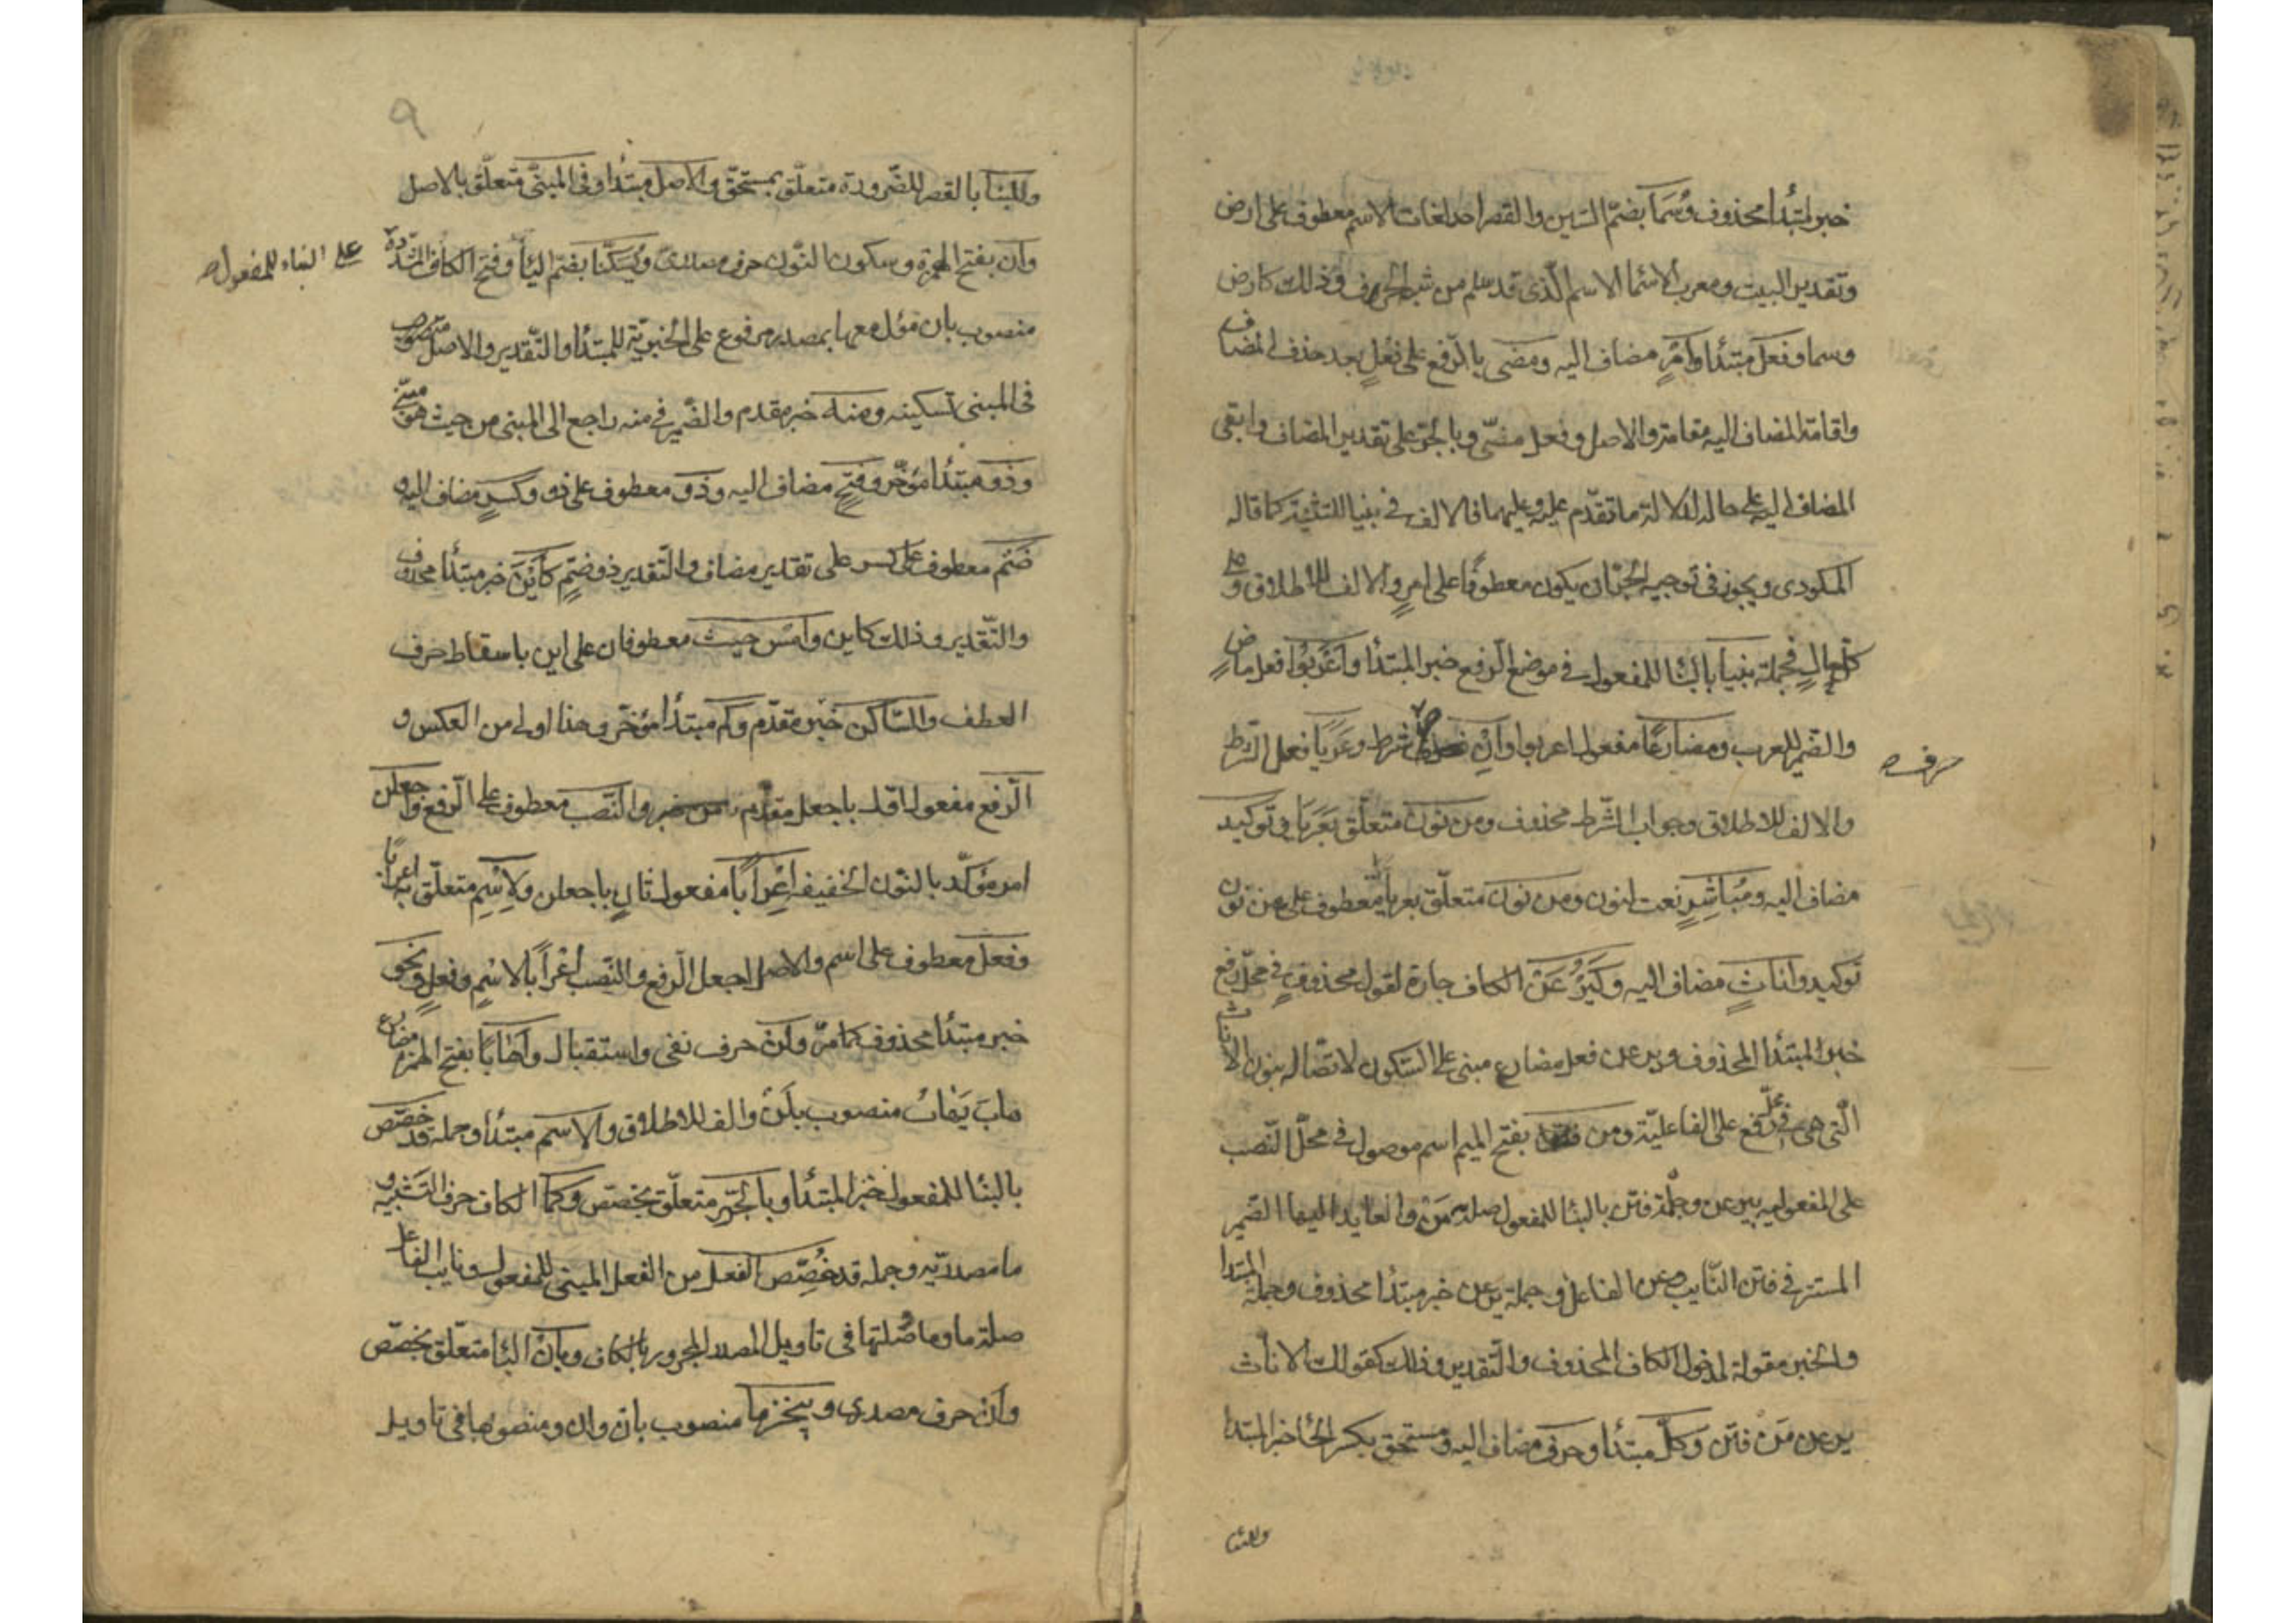 خبر لمبتدأ محذوف وسما بضم السين والقصر احد لغات الاسم معطوف على ارض
وتقدير البيت ومعرب الاسما الاسم الذى قد سلم من شبه الحرف وذلك كارض
وسما وفعل مبتدأ وامر مضاف اليه ومضى بالرفع على فعل بعد حذف المضاف
واقامة المضاف اليه مقامه والاصل وفعل مضى وبالجر على تقدير المضاف وابقى
المضاف اليه على حاله لدلالة ما تقدم عليه وعليهما فالالف فى بنيا للتثنية كما قاله
المكودى ويجوز فى توجيه الجر ان يكون معطوفا على امر والالف للاطلاق وعلى
كل حال فجملة بنيا بالبنا للمفعول فى موضع الرفع خبر المبتدأ واعربوا فعل ماض
والضمير للعرب ومضارعا مفعول اعربوا وان حرف شرط وعريا فعل الشرط
حرف
والالف للاطلاق وجواب الشرط محذوف ومن نون متعلق بعريا وتوكيد
مضاف اليه ومباشر نعت لنون ومن نون متعلق بعريا معطوف على من نون
توكيد واناث مضاف اليه وكيرعن الكاف جارة لقول محذوف فى محل رفع
خبر المبتدأ المحذوف ويرعن فعل مضارع مبنى على السكون لاتصاله بنون الاناث
التى هى فى محل رفع على الفاعلية ومن بفتح الميم اسم موصول فى محل النصب
على المفعولية بيرعن وجملة فتن بالبنا للمفعول صلة من والعايد اليها الضمير
المستتر فى فتن النايب عن الفاعل وجملة يرعن خبر مبتدأ محذوف وجملة المبتدا
والخبر مقولة لمدخول الكاف المحذوف والتقدير وذلك كقولك الاناث
يرعن من فتن وكل مبتدأ وحرف مضاف اليه ومستحق بكسر الحا خبر المبتدا
وللبنا
وللبنا بالقصر للضرورة متعلق بمستحق والاصل مبتدأ وفى المبنى متعلق بالاصل
وان بفتح الهمزة وسكون النون حرف مصدرى ويسكنا بضم اليا وفتح الكاف المشددة
على البناء للمفعول
منصوب بان مؤل معها بمصدر مرفوع على الخبرية للمبتدأ والتقدير والاصل
فى المبنى تسكينه ومنه خبر مقدم والضمير فى منه راجع الى المبنى من حيث هو مبنى
وذو مبتدأ مؤخر وفتح مضاف اليه وذو معطوف على ذو وكسر مضاف اليه و
ضم معطوف على كسر على تقدير مضاف والتقدير ذو ضم كاين خبر مبتدأ محذوف
والتقدير وذلك كاين وامس حيث معطوفان على اين باسقاط حرف
العطف والساكن خبر مقدم وكم مبتدأ مؤخر وهذا اولى من العكس و
الرفع مفعول اول باجعل مقدم والنصب معطوف على الرفع واجعلن
امر مؤكد بالنون الخفيفة اعرابا مفعول ثان باجعلن ولاسم متعلق باعرابا
وفعل معطوف على اسم والاصل اجعل الرفع والنصب اعرابا لاسم وفعل ونحو
خبر مبتدأ محذوف كما مر ولن حرف نفى واستقبال واهابا بفتح الهمزة مضارع
هاب يهاب منصوب بلن والف للاطلاق والاسم مبتدأ وجملة قد خصص
بالبنا للمفعول خبر المبتدأ وبالجر متعلق بخصص وكما الكاف حرف التشبيه و
ما مصدرية وجملة قد خصص الفعل من الفعل المبنى للمفعول ونايب الفاعل
صلة ما وما وصلتها فى تاويل المصدر المجرور بالكاف وبان البا متعلق بخصص
وان حرف مصدرى وينجزما منصوب بان وان ومنصوبها فى تاويل